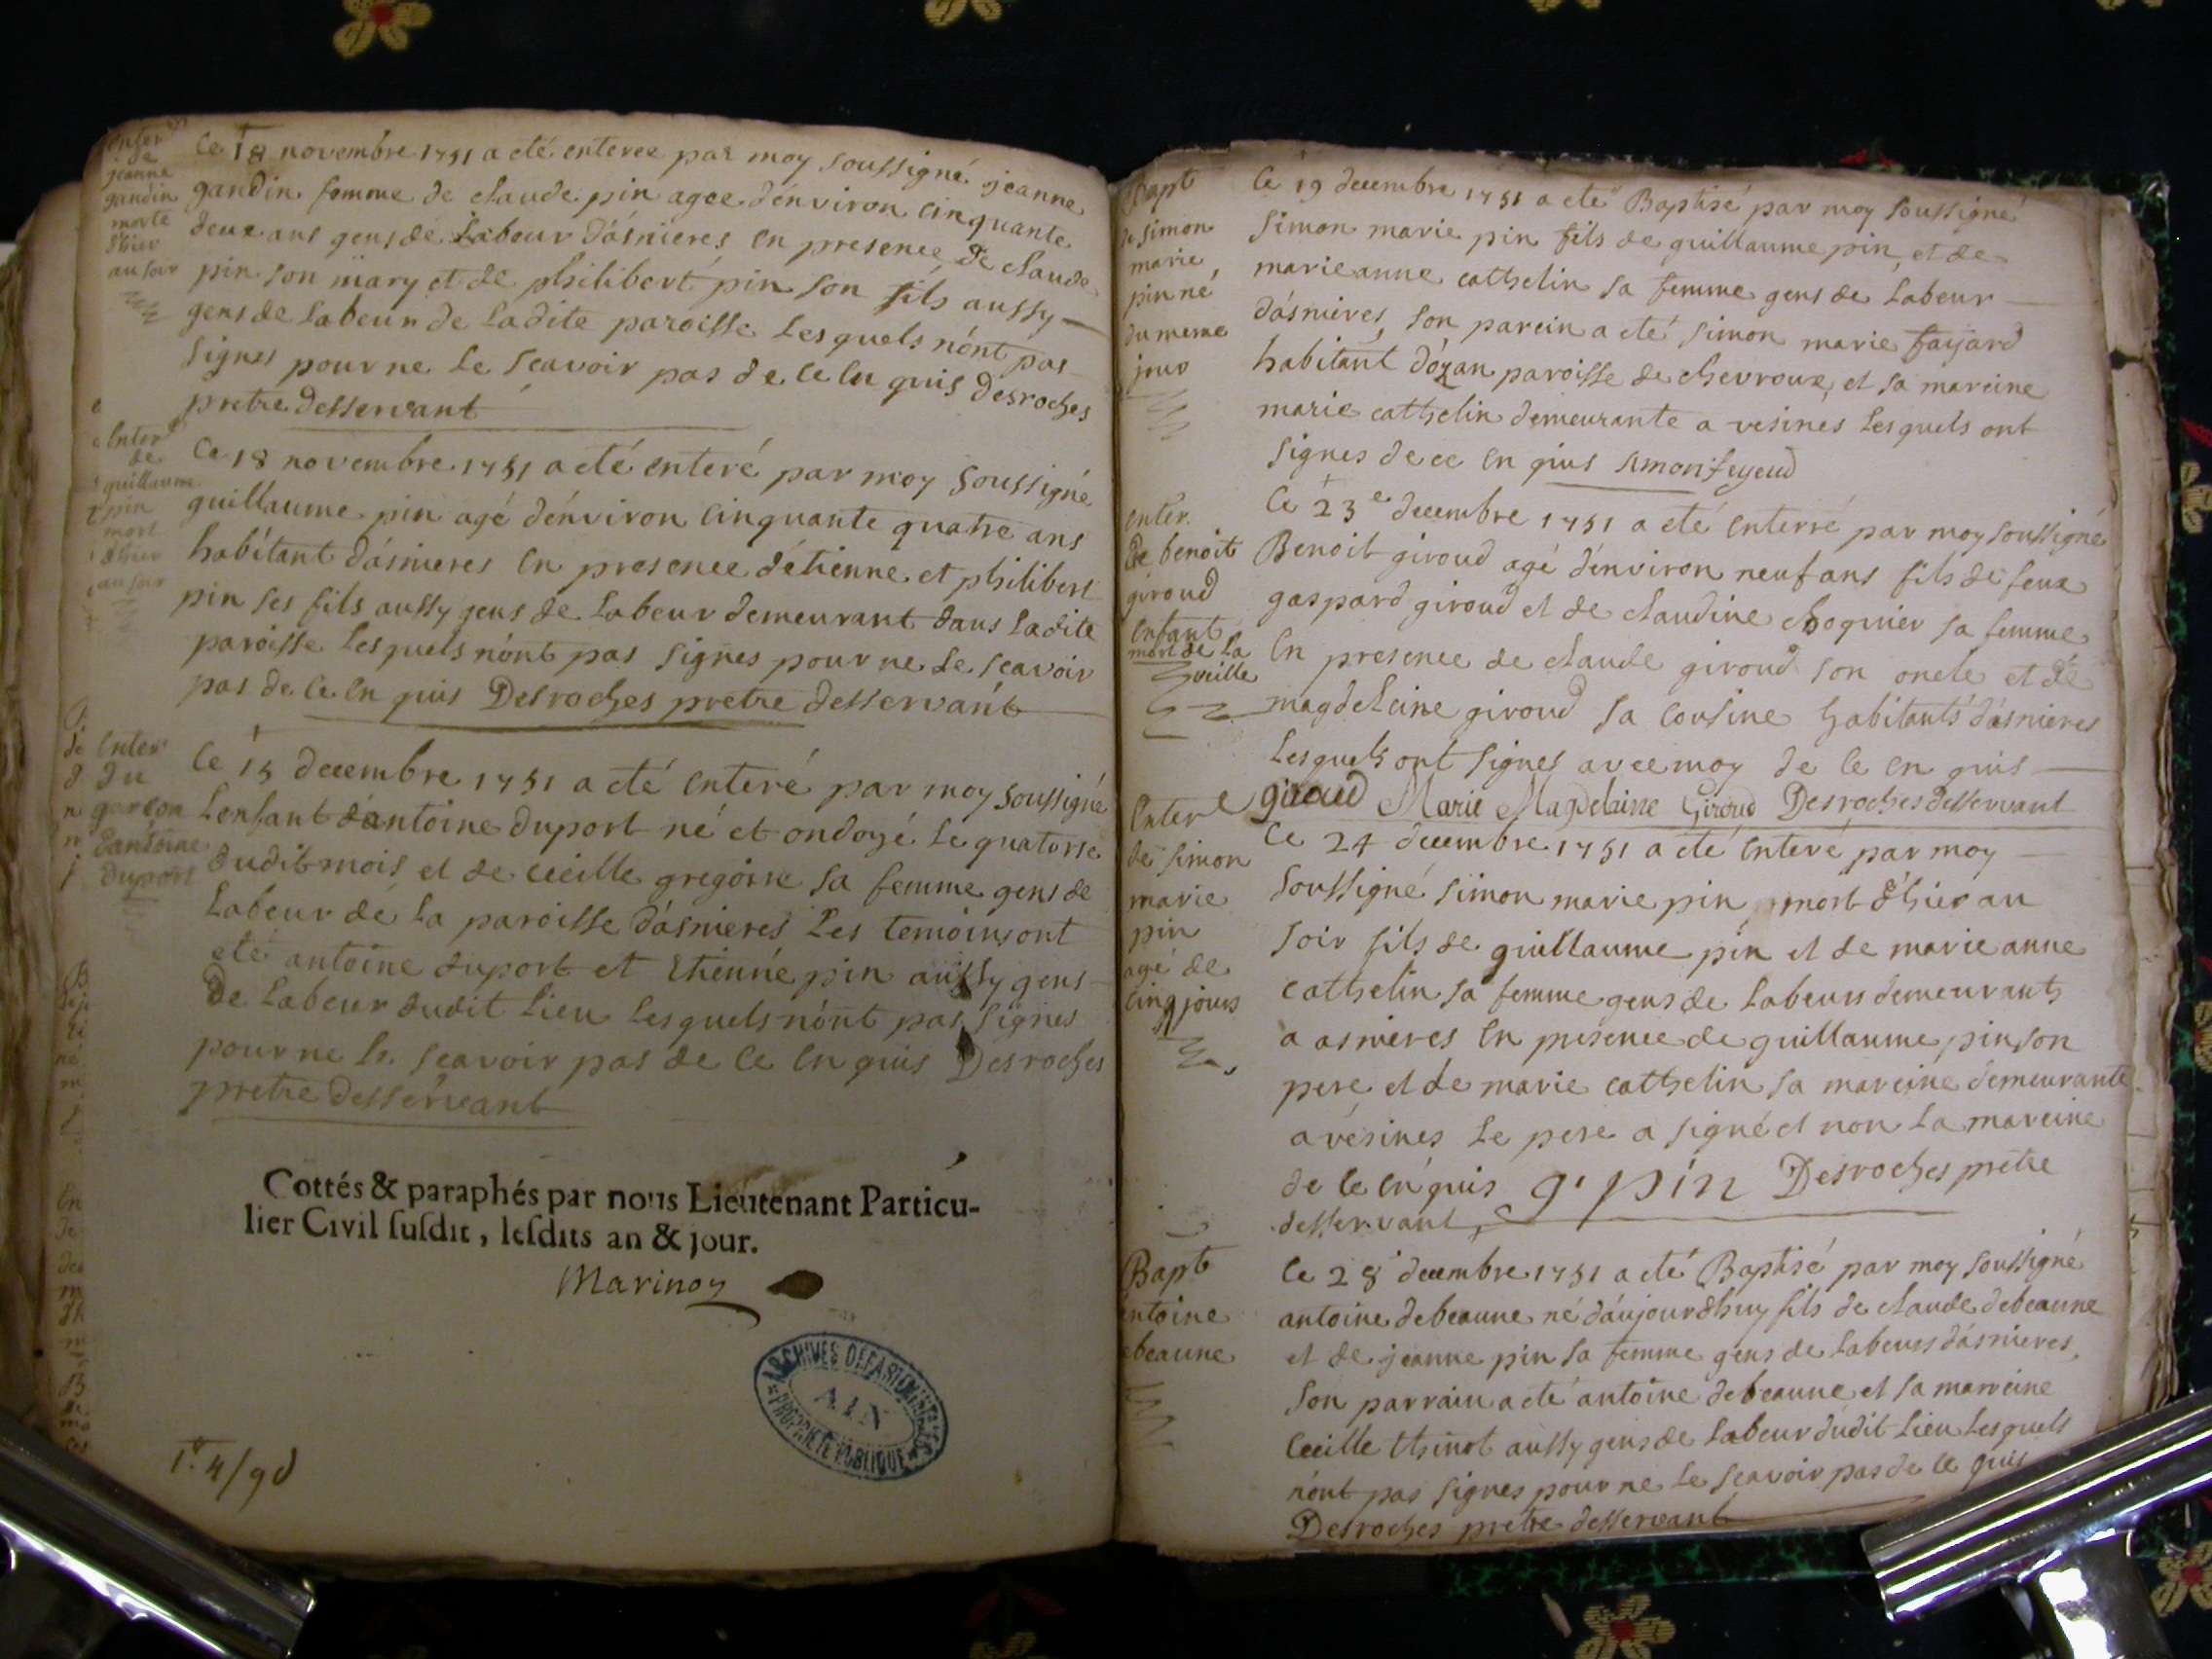 enter
de
jeanne
gandin
morte
d'hier
au soir
Ce 18 novembre 1751 a eté enteree par moy soussigné jeanne
gandin femme de claude pin agee d'environ cinquante
deux ans gens de Labour d'asnieres en presence de claude
pin son mary et de philibert pin son fils aussy
gens de Labeur de Ladite paroisse Lesquels n'ont pas
signes pour ne Le scavoir pas de ce en quis Desroches
pretre desservant
Enter
de
guillaume
pin
mort
d'hier
au soir
Ce 18 novembre 1751 a eté enteré par moy soussigné
guillaume pin agé d'environ cinquante quatre ans
habitant d'asnieres en presence d'etienne et philibert
pin ses fils aussy gens de Labeur demeurant dans Ladite
paroisse Lesquels n'ont pas signes pour ne Le scavoir
pas de ce en quis Desroches pretre desservant
Enter
du
garcon
d'antoine
duport
Ce 15 decembre 1751 a eté enteré par moy soussigné
Lenfant d'antoine duport né et ondoyé Le quatorse
dudit mois et de ceeille gregoire sa femme gens de
Labeur de La paroisse d'asnieres Les temoins ont
eté antoine duport et Etienne pin aussy gens
de Labeur dudit Lieu Lesquels n'ont pas signes
pour ne Le scavoir pas de ce en quis Desroches
pretre desservant
Cottés & paraphés par nous Lieutenant Particu-
lier Civil susdit, lesdits an & jour.
Marinon
ARCHIVES DEPARTEMENTALES
AIN
PROPRIETE PUBLIQUE
Bapt
de simon
marie
pin né
du meme
jour
Ce 19 decembre 1751 a eté Baptisé par moy soussigné
simon marie pin fils de guillaume pin et de
marie anne cathelin sa femme gens de Labeur
d'asnieres, son parein a eté simon marie fayard
habitant d'ozan paroisse de chevroux, et sa mareine
marie cathelin demeurante a vesines Lesquels ont
signes de ce en quis simon feyeud
Enter
de benoit
giroud
Enfant
mort de la
veille
Ce 23e decembre 1751 a eté enterré par moy soussigné
Benoit giroud agé d'environ neuf ans fils de feux
gaspard giroud et de claudine choquier sa femme
En presence de claude giroud son oncle et de
magdeleine giroud sa cousine habitants d'asnieres
Lesquels ont signes avec moy de ce en quis
C giroud Marie Magdelaine Giroud Desroches desservant
Enter
de simon
marie
pin
agé de
cinq jours
Ce 24 decembre 1751 a eté enteré par moy
soussigné simon marie pin mort d'hier au
soir fils de guillaume pin et de marie anne
cathelin sa femme gens de Labeurs demeurants
a asnieres en presence de guillaume pin son
pere et de marie cathelin sa mareine demeurante
a vesines Le pere a signé et non La mareine
de ce en quis g. pin Desroches pretre
desservant
Bapt
antoine
debeaune
Ce 28 decembre 1751 a eté Baptisé par moy soussigné
antoine debeaune né d'aujourdhuy fils de claude debeaune
et de jeanne pin sa femme gens de Labeurs d'asnieres,
son parrain a eté antoine debeaune et sa marreine
Ceeille thinot aussy gens de Labeur dudit Lieu Lesquels
n'ont pas signes pour ne Le scavoir pas de ce quis
Desroches pretre desservant